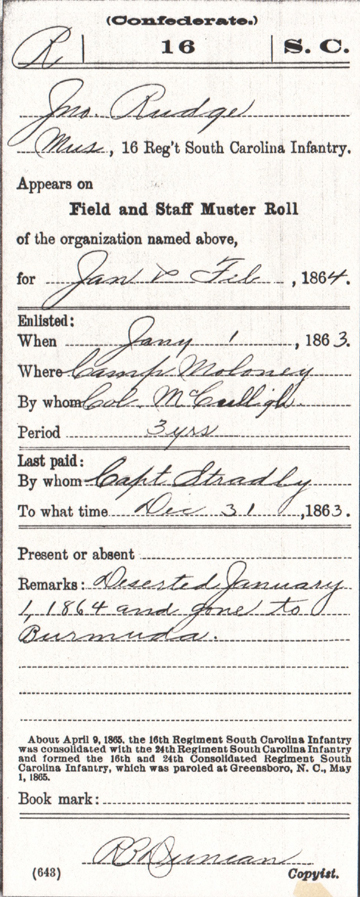 (Confederate.)
R | 16 | S. C.
Jno. Rudge
Mus, 16 Reg't South Carolina Infantry.
Appears on
Field and Staff Muster Roll
of the organization named above,
for Jan & Feb, 1864.
Enlisted:
When Jany 1, 1863.
Where Camp Moloney
By whom Col. McCulligh
Period 3 yrs
Last paid:
By whom Capt Stradly
To what time Dec 31, 1863.
Present or absent
Remarks: Deserted January
1, 1864 and gone to
Burmuda.
About April 9, 1865, the 16th Regiment South Carolina Infantry
was consolidated with the 24th Regiment South Carolina Infantry
and formed the 16th and 24th Consolidated Regiment South
Carolina Infantry, which was paroled at Greensboro, N. C., May
1, 1865.
Book mark:
R B Duncan
(643) Copyist.